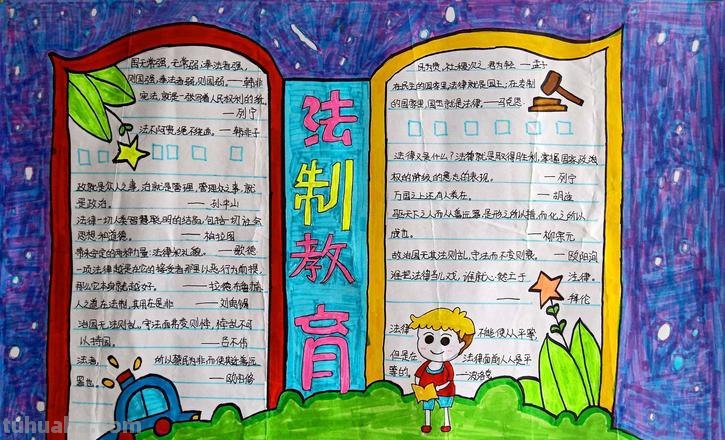 国无常强,无常弱,奉法者强,
则国强,奉法者弱,则国弱。——韩非
宪法,就是一张写着人民权利的纸。
——列宁
法不阿贵,绳不绕曲。——韩非子
政就是众人之事,治就是管理,管理众之事,就
是政治。——孙中山
法律一切人类智慧聪明的结晶,包括一切社会
思想和道德。——柏拉图
——歌德
一项法律越是在它的接受者那里以恶行为前提,
那么它本身就越好。
人之道在法制,其用在是非——刘禹锡
治国无法则乱,守法而弗变则悖,悖乱不可
以持国。——吕不韦
法者,
所以禁民为非而使其迁善远
罪也。——欧阳修
法
制
教
育
民为贵,社稷次之,君为轻——孟子
在民主的国家里,法律就是国王;在专制
的国家里,国王就是法律。——马克思
法律又是什么?法律就是取得胜利、掌握国家政
权的阶级的意志的表现。——列宁
万国之上还有人类在。——胡适
成也。——柳宗元
故治国无其法则乱,守法而不变则衰。——欧阳询
谁把法律当儿戏,谁就必然亡于
法律。
——拜伦
法律
不能使人人平等,
但是在
法律面前人人是平
等的。——波洛克
tuhua